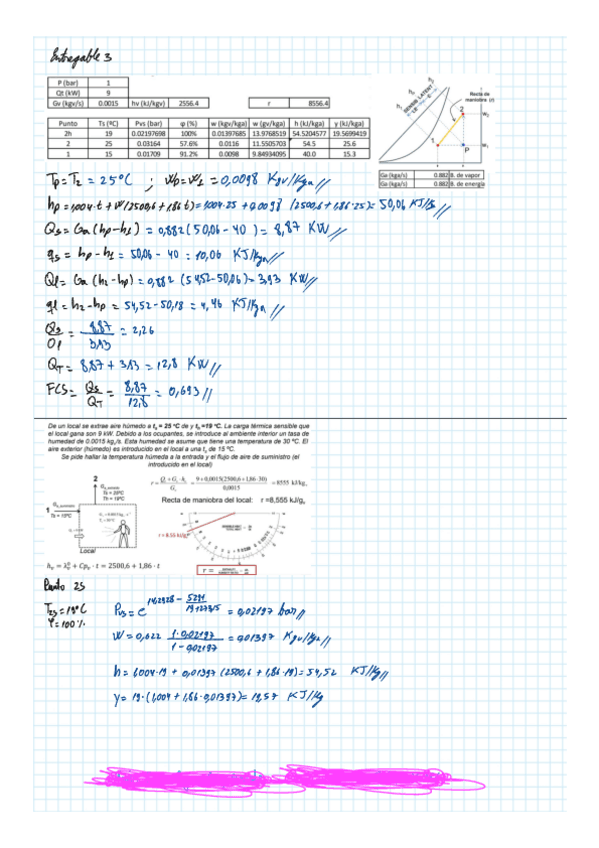 Entregable 3
P (bar) 1
Qt (kW) 9
Gv (kgv/s) 0.0015 hv (kJ/kgv) 2556.4 r 8556.4
Punto Ts (ºC) Pvs (bar) φ (%) w (kgv/kga) w (gv/kga) h (kJ/kga) y (kJ/kga)
2h 19 0.02197698 100% 0.01397685 13.9768519 54.5204577 19.5699419
2 25 0.03164 57.6% 0.0116 11.5505703 54.5 25.6
1 15 0.01709 91.2% 0.0098 9.84934095 40.0 15.3
SENSIBL LATENT
Recta de
maniobra (r)
h₁
2
w₂
1
P
w₁
Ga (kga/s) 0.882 B. de vapor
Ga (kga/s) 0.882 B. de energía
Tp = T2 = 25°C ; wp = w1 = 0,0098 Kgv/Kga
hp = 1,004·t + w(2500,6 + 1,86 t) = 1004·25 + 0,0098 (2500,6 + 1,86·25) = 50,06 KJ/
Qs = Ga (hp - h1) = 0,882 (50,06 - 40) = 8,87 KW
qs = hp - h1 = 50,06 - 40 = 10,06 KJ/Kga
Ql = Ga (h2 - hp) = 0,882 (54,52 - 50,06) = 3,93 KW
ql = h2 - hp = 54,52 - 50,18 = 4,46 KJ/Kga
Qs/Ql = 8,87/3,93 = 2,26
QT = 8,87 + 3,93 = 12,8 KW
FCS = Qs/QT = 8,87/12,8 = 0,693
De un local se extrae aire húmedo a t₂ = 25 ºC de y tₕ =19 ºC. La carga térmica sensible que
el local gana son 9 kW. Debido a los ocupantes, se introduce al ambiente interior un tasa de
humedad de 0.0015 kgᵥ/s. Esta humedad se asume que tiene una temperatura de 30 ºC. El
aire exterior (húmedo) es introducido en el local a una tₛ de 15 ºC.
Se pide hallar la temperatura húmeda a la entrada y el flujo de aire de suministro (el
introducido en el local)
2
Ts = 25ºC
Th = 19ºC
1
Ts = 15ºC
Local
r = (Qs + Gv · hv)/Gv = (9 + 0,0015(2500,6 + 1,86·30))/0,0015 = 8555 kJ/kgv
Recta de maniobra del local: r =8,555 kJ/gv
r = 8.55 kJ/gv
r =
hv = λ₀ + Cpv · t = 2500,6 + 1,86 · t
Punto 2s
T2s = 19°C
φ = 100 %
Pvs = e^(14,2928 - 5291/(19+273,15)) = 0,02197 bar
W = 0,622 (1·0,02197)/(1 - 0,02197) = 0,01397 Kgv/Kga
h = 1,004·19 + 0,01397 (2500,6 + 1,86·19) = 54,52 KJ/Kg
y = 19·(1,004 + 1,86·0,01397) = 19,57 KJ/Kg